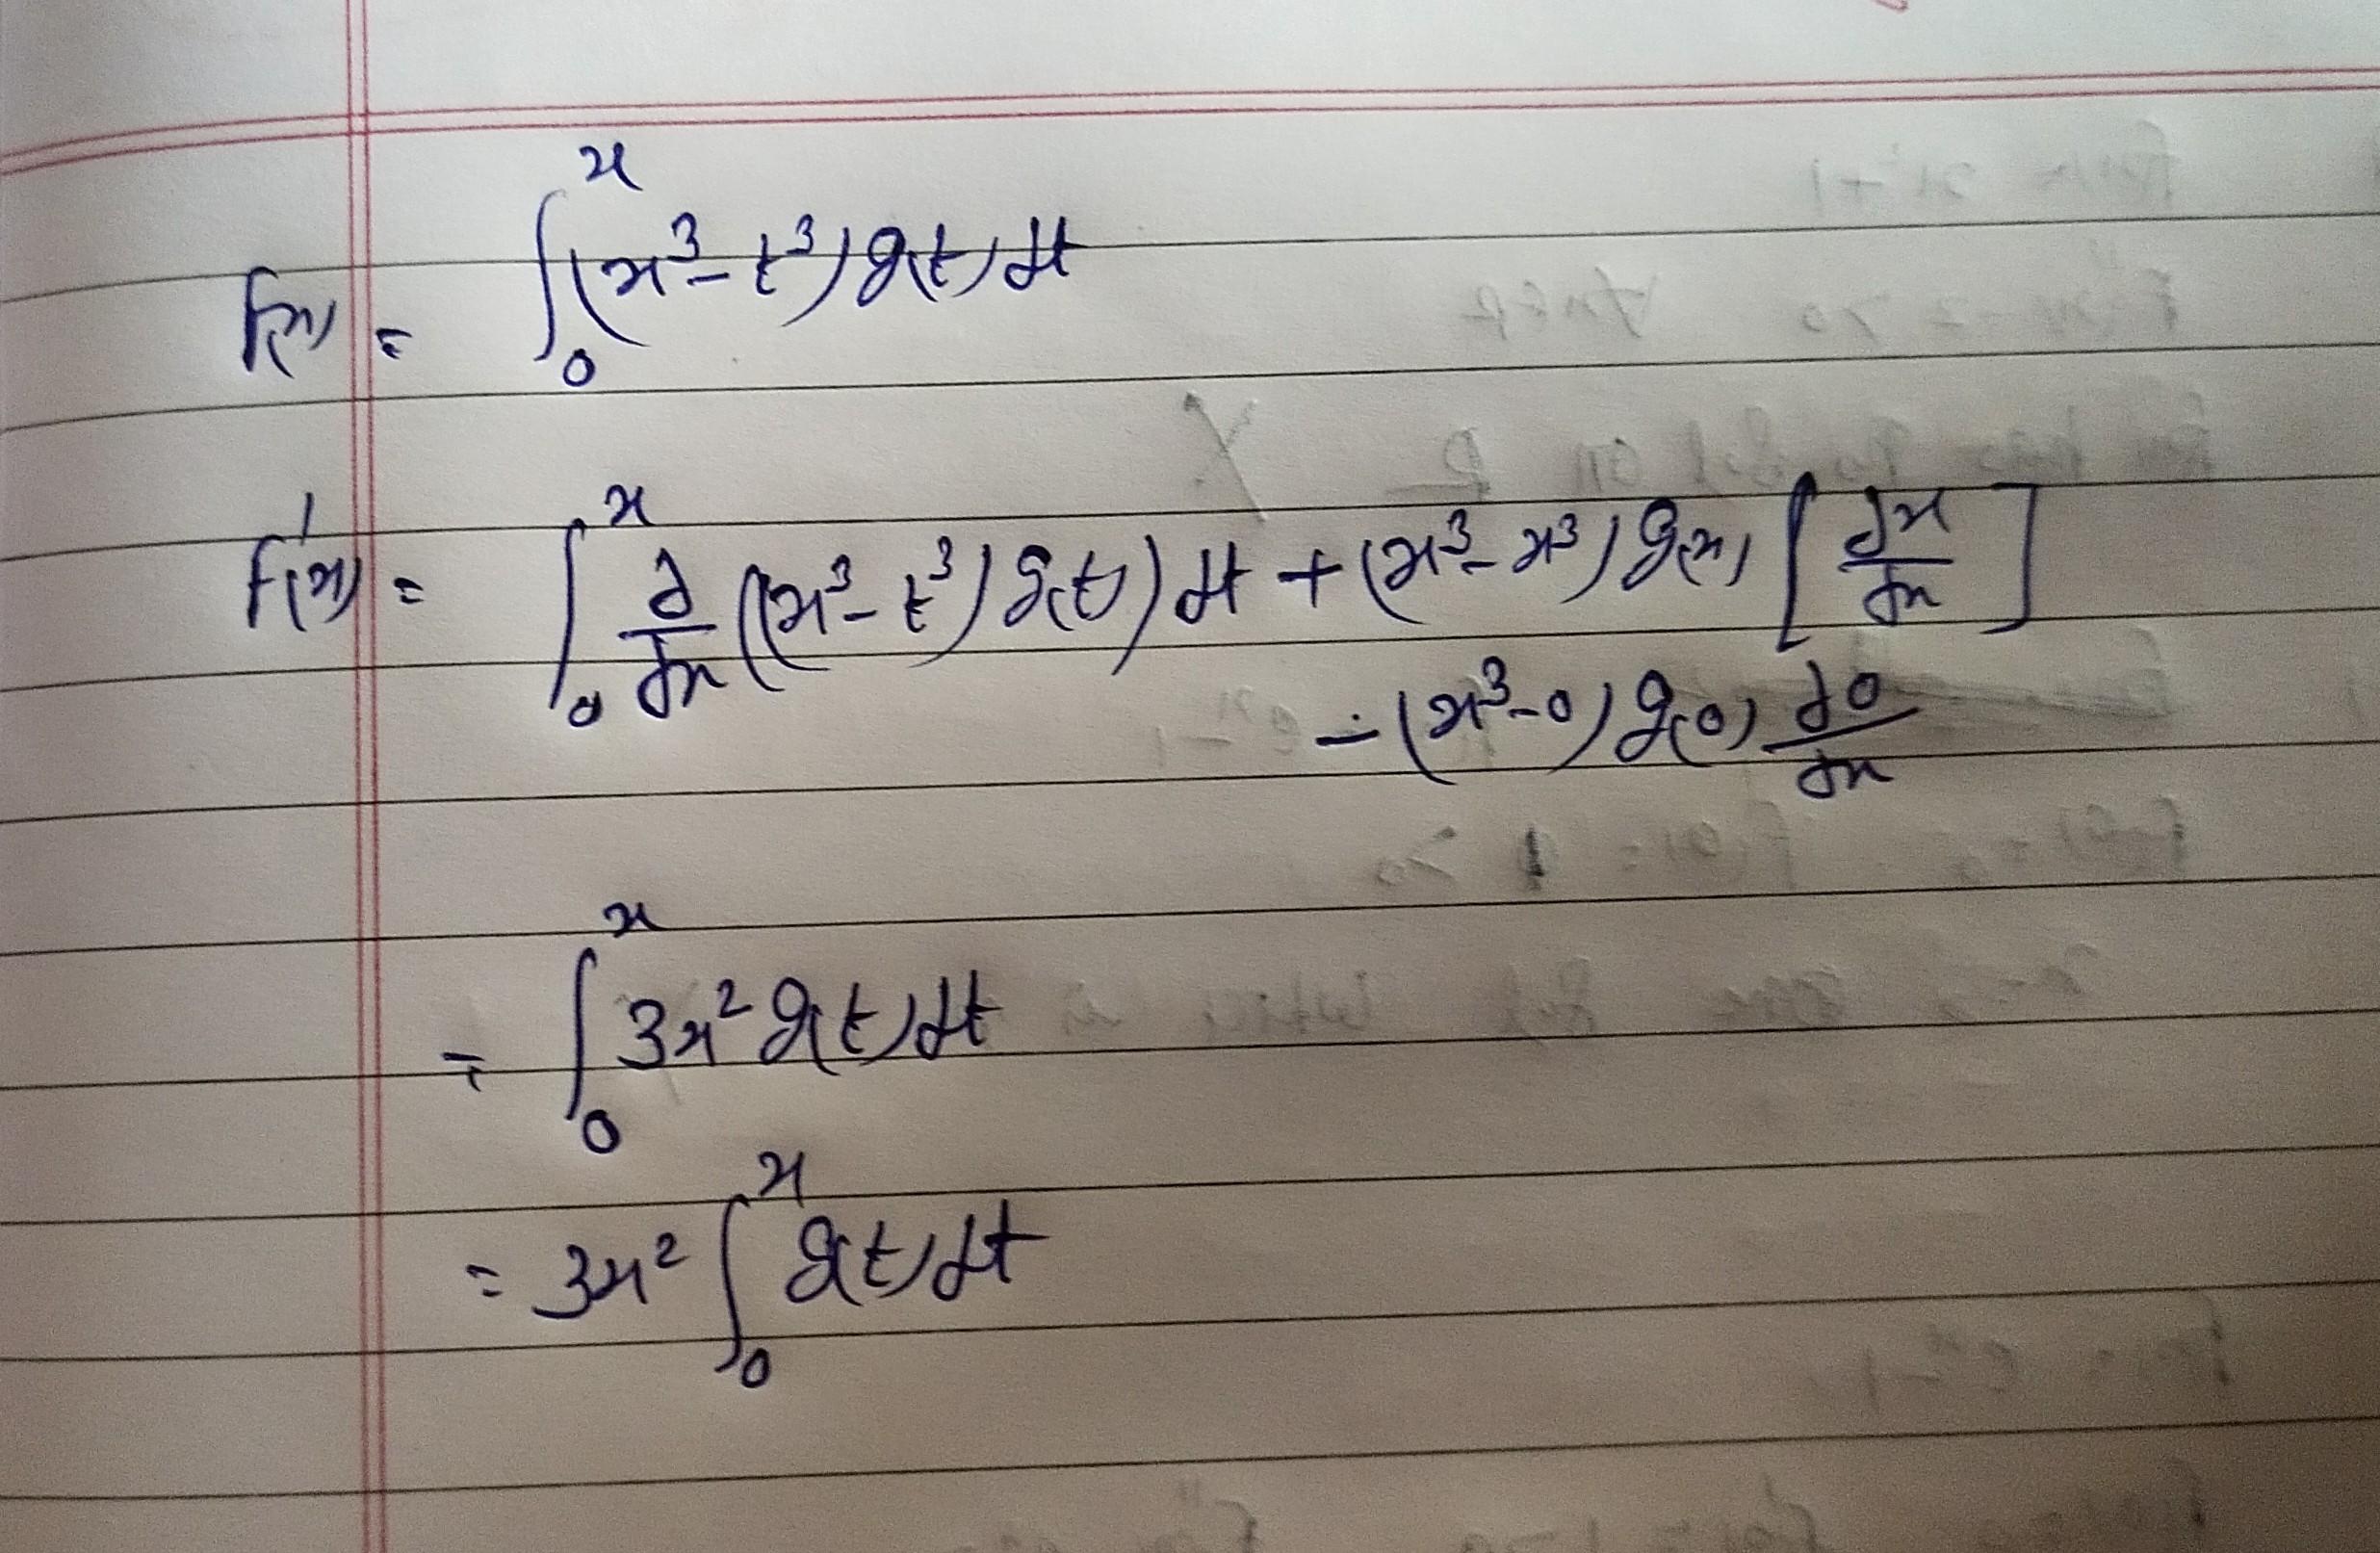 f(x) = ∫₀ˣ (x³ - t³) g(t) dt
f'(x) = ∫₀ˣ ∂/∂x ((x³ - t³) g(t)) dt + (x³ - x³) g(x) [dx/dx]
- (x³ - 0) g(0) d0/dx
= ∫₀ˣ 3x² g(t) dt
= 3x² ∫₀ˣ g(t) dt